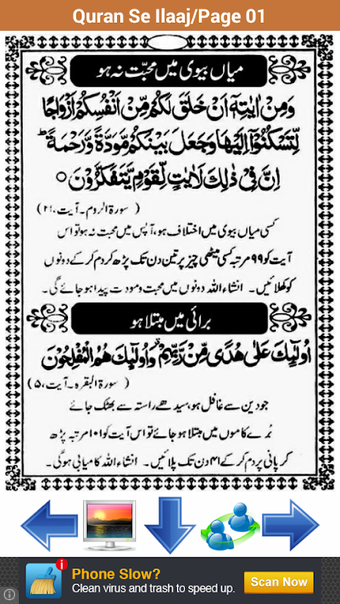 Quran Se Ilaaj/Page 01
میاں بیوی میں محبت نہ ہو
وَمِنْ اٰيٰتِهٖٓ اَنْ خَلَقَ لَكُمْ مِّنْ اَنْفُسِكُمْ اَزْوَاجًا
لِّتَسْكُنُوْٓا اِلَيْهَا وَجَعَلَ بَيْنَكُمْ مَّوَدَّةً وَّرَحْمَةً ؕ
اِنَّ فِيْ ذٰلِكَ لَاٰيٰتٍ لِّقَوْمٍ يَّتَفَكَّرُوْنَ ○
( سورۃ الروم۔ آیت، ۲۱ )
کسی میاں بیوی میں اختلاف ہو، آپس میں محبت نہ ہو تو اس
آیت کو ۹۹ مرتبہ کسی میٹھی چیز پر تین دن تک پڑھ کر دم کر کے دونوں
کو کھلائیں۔ انشاء اللہ دونوں میں محبت و مودت پیدا ہو جائے گی۔
برائی میں مبتلا ہو
اُولٰٓئِكَ عَلٰى هُدًى مِّنْ رَّبِّهِمْ ۙ وَاُولٰٓئِكَ هُمُ الْمُفْلِحُوْنَ
( سورۃ البقرہ۔ آیت، ۵ )
جو دین سے غافل ہو، سیدھے راستہ سے بھٹک جائے
بُرے کاموں میں مبتلا ہو جائے تو اس آیت کو ۱۰۱ مرتبہ پڑھ
کر پانی پر دم کر کے ۴۱ دن تک پلائیں۔ انشاء اللہ کامیابی ہو گی۔
Phone Slow?
Clean virus and trash to speed up.
Scan Now